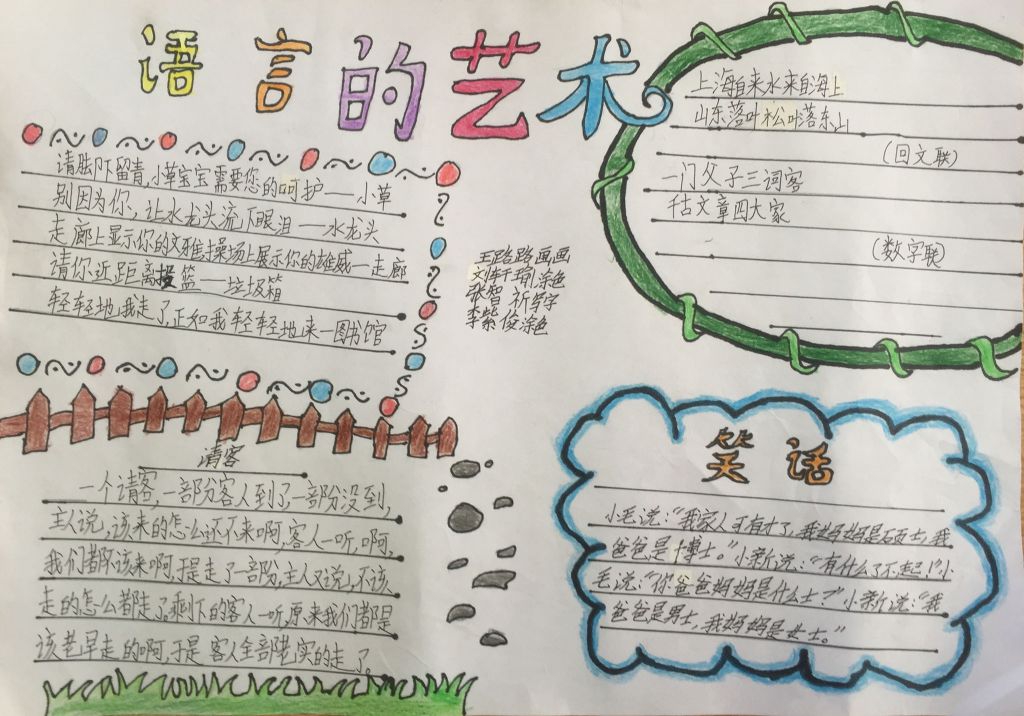 语言的艺术
请脚下留青,小草宝宝需要您的呵护——小草
别因为你，让水龙头流下眼泪——水龙头
走廊上显示你的文雅,操场上展示你的雄威—走廊
请你近距离投篮——垃圾箱
轻轻地,我走了,正如我轻轻地来—图书馆
王路路画画
刘轩瑜涂色
张智祈写字
李紫俊涂色
上海自来水来自海上
山东落叶松叶落东山
(回文联)
一门父子三词客
估文章四大家
(数字联)
请客
一个请客,一部分客人到了一部分没到,
主人说,该来的怎么还不来啊,客人一听,啊,
我们都不该来啊,于是走了一部分,主人又说,不该
走的怎么都走了,剩下的客人一听,原来我们都是
该老早走的啊,于是客人全部老实的走了。
笑话
小毛说:“我家人可有才了,我妈妈是硕士,我
爸爸是博士。”小新说:“有什么了不起!”小
毛说:“你爸爸妈妈是什么士?”小新说:“我
爸爸是男士,我妈妈是女士。”